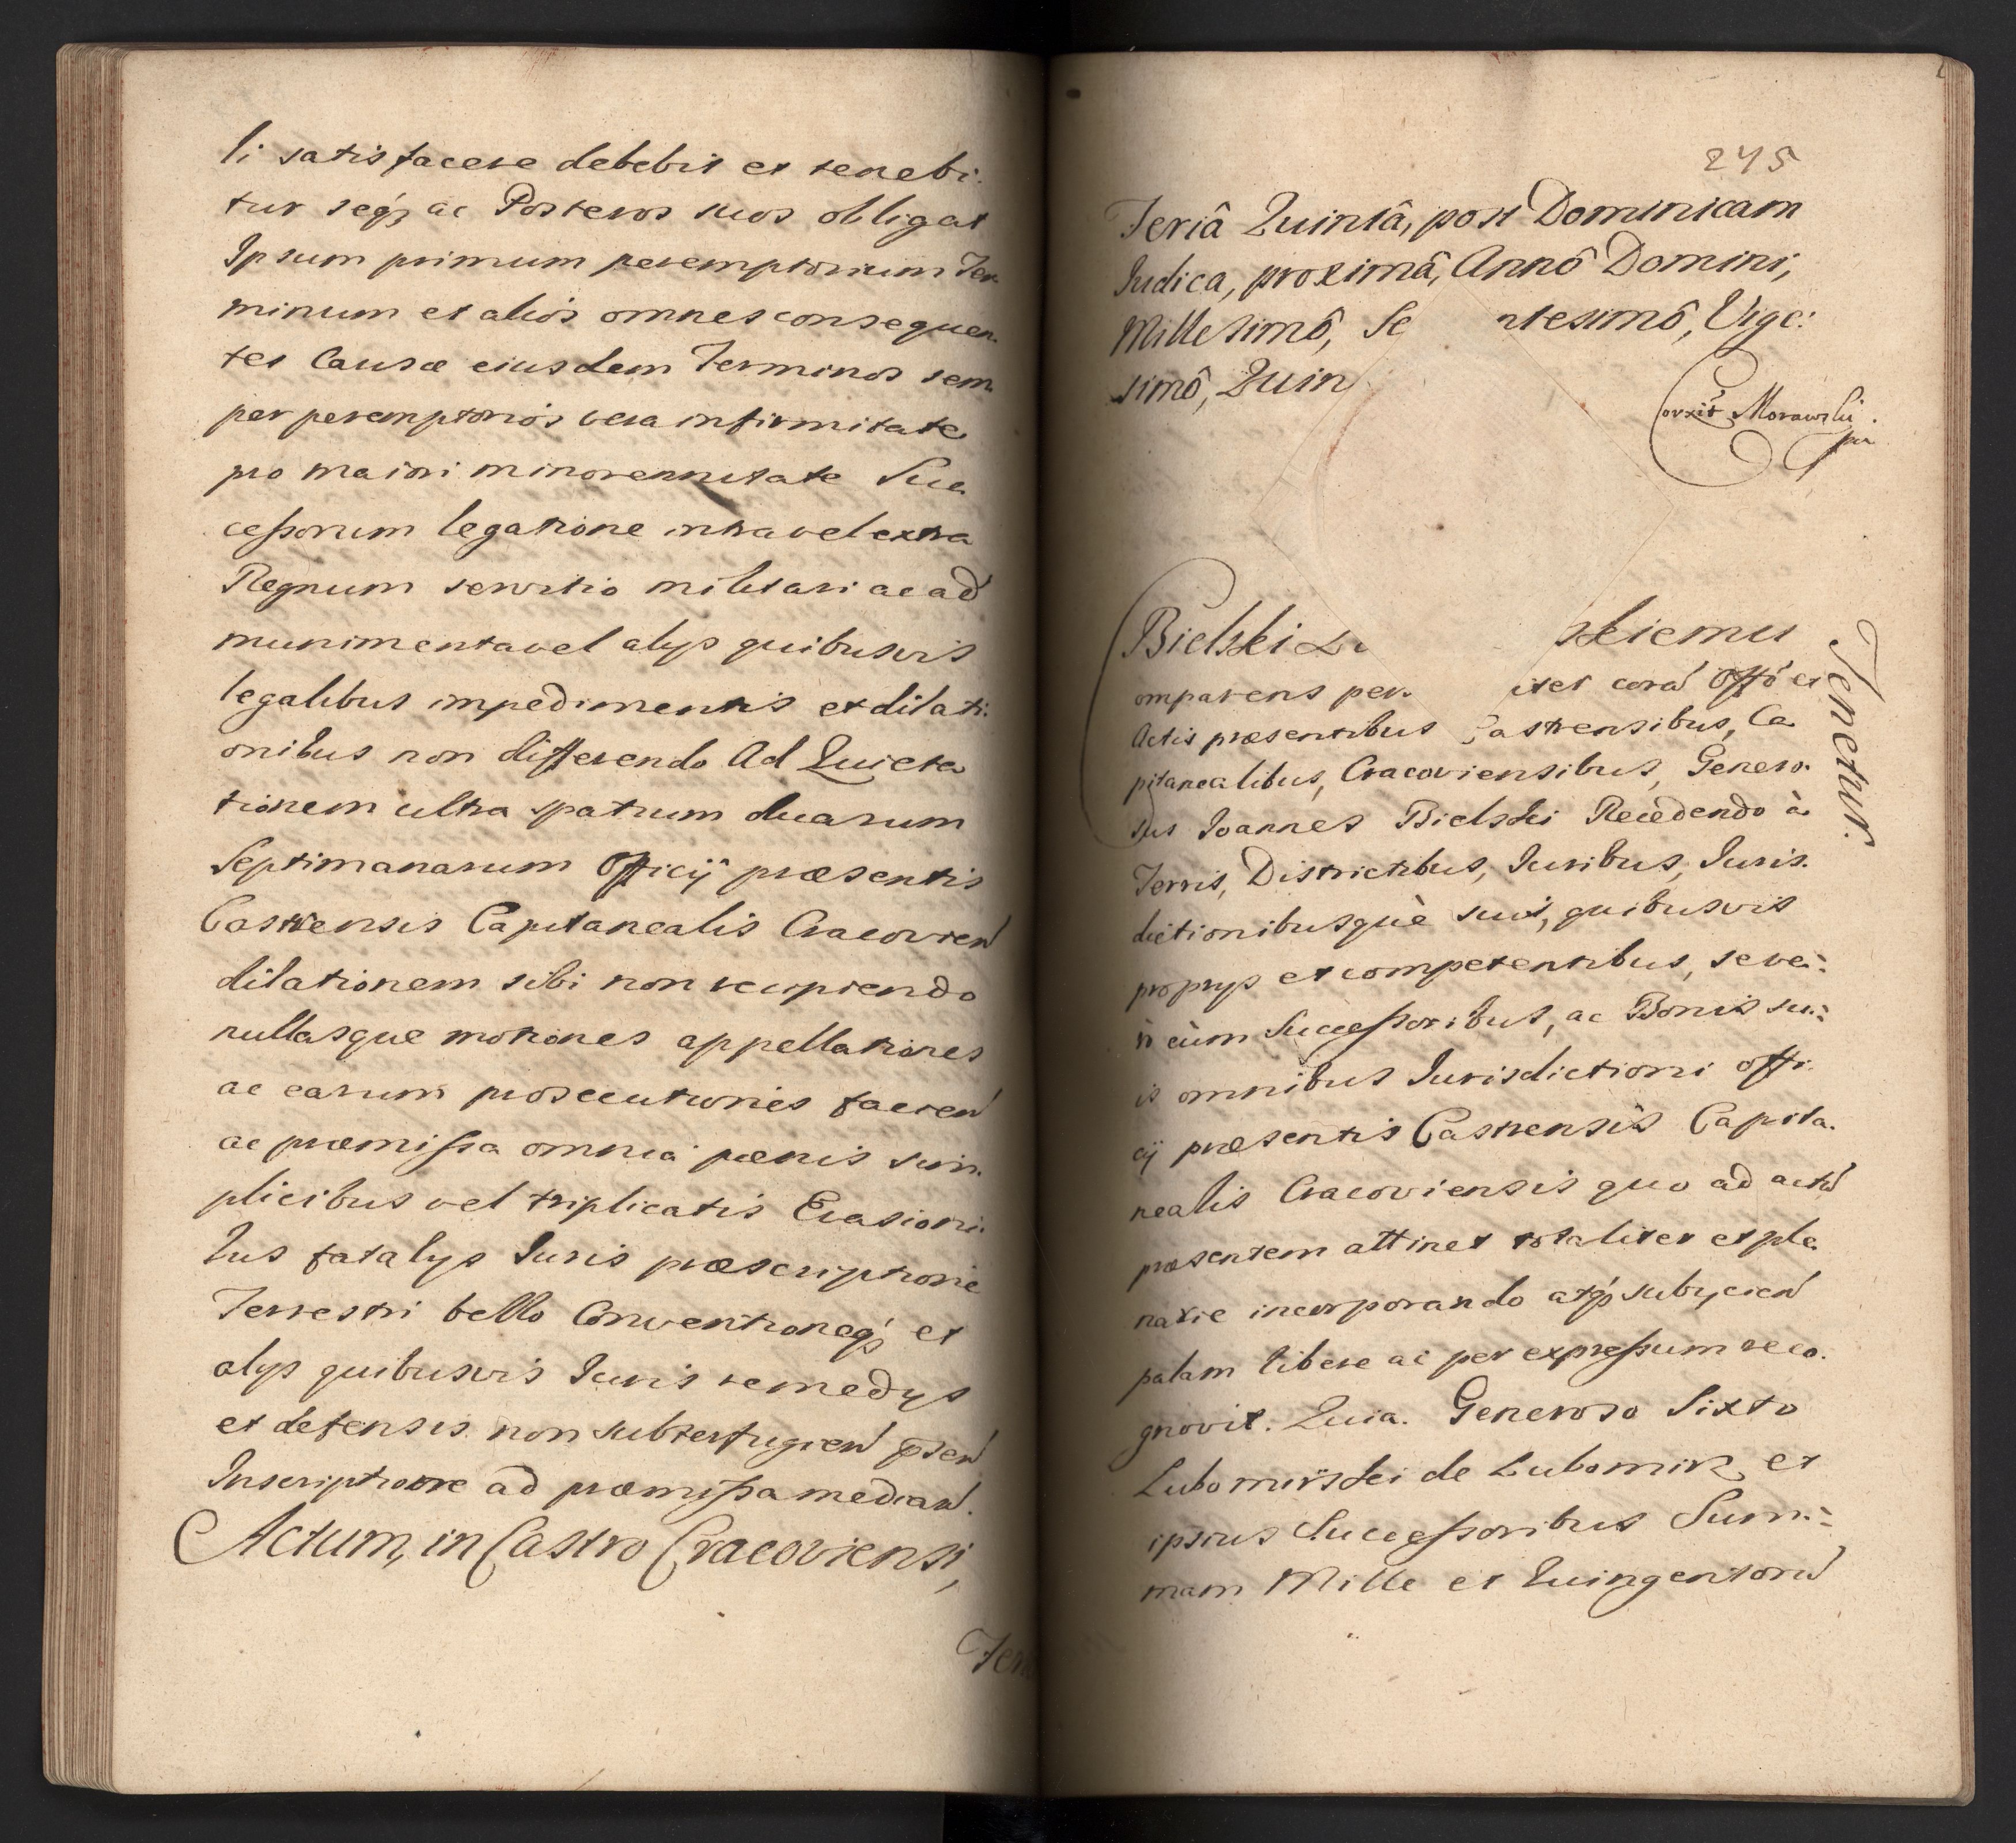 li satisfacere debebit et tenebi.
tur seq́ꝫ ac Posteros suos obligat
Ipsum primum peremptorium Ter
minum et alios omnes consequen.
tes Causæ eiusdem Terminos sem
per peremptorios vera infirmitate
pro maiori minorennitate Suc
cessorum legatione intra vel extra
Regnum servitio militari ac ad
munimenta vel alys quibusvis
legalibus impedimentis et dilati.
onibus non differendo Ad Quieta
tionem ultra spatium duarum
Septimanarum Officij præsentis
Castrensis Capitanealis Cracovien
dilationem sibi non recipiendo
nullasque motiones appellationes
ac earum prosecutiones facien
ac præmissa omnia pænis sim.
plicibus vel triplicatis Evasioni.
bus fatalys Iuris præscriptione
Terrestri bello Conventioneq́ꝫ et
alys quibusvis Iuris remedys
et defensis non subterfugien psen
Inscriptione ad præmissa median.
Actum, in Castro Cracoviensi,
Feri
245
Feriâ Quintâ, post Dominicam
Iudica, proximâ, Annô Domini,
Millesimô, Se ntesimô, Vige:
simô, Quin
Corxit Morawski.
Bielski Lu skiemu
Tenetur.
omparens per. iter corá Offô et
Actis præsentibus Castrensibus, Ca
pitanealibus, Cracoviensibus, Genero.
sus Ioannes Bielski Recedendo à
Terris, Districtibus, Iuribus, Iuris.
dictionibusquè suis, quibusvis
proprys et competentibus, seve:
ò cùm Successoribus, ac Bonis su:
is omnibus Iurisdictioni offi.
cij præsentis Castrensis Capita.
nealis Cracoviensis quo ad actú
præsentem attinet totaliter et ple
narie incorporando atq́ꝫ subycien
palam libere ac per expressum reco.
gnovit. Quia. Generoso Sixto
Lubomirski de Lubomirz et
ipsius Successoribus Sum:
mam Mille et Quingentorú